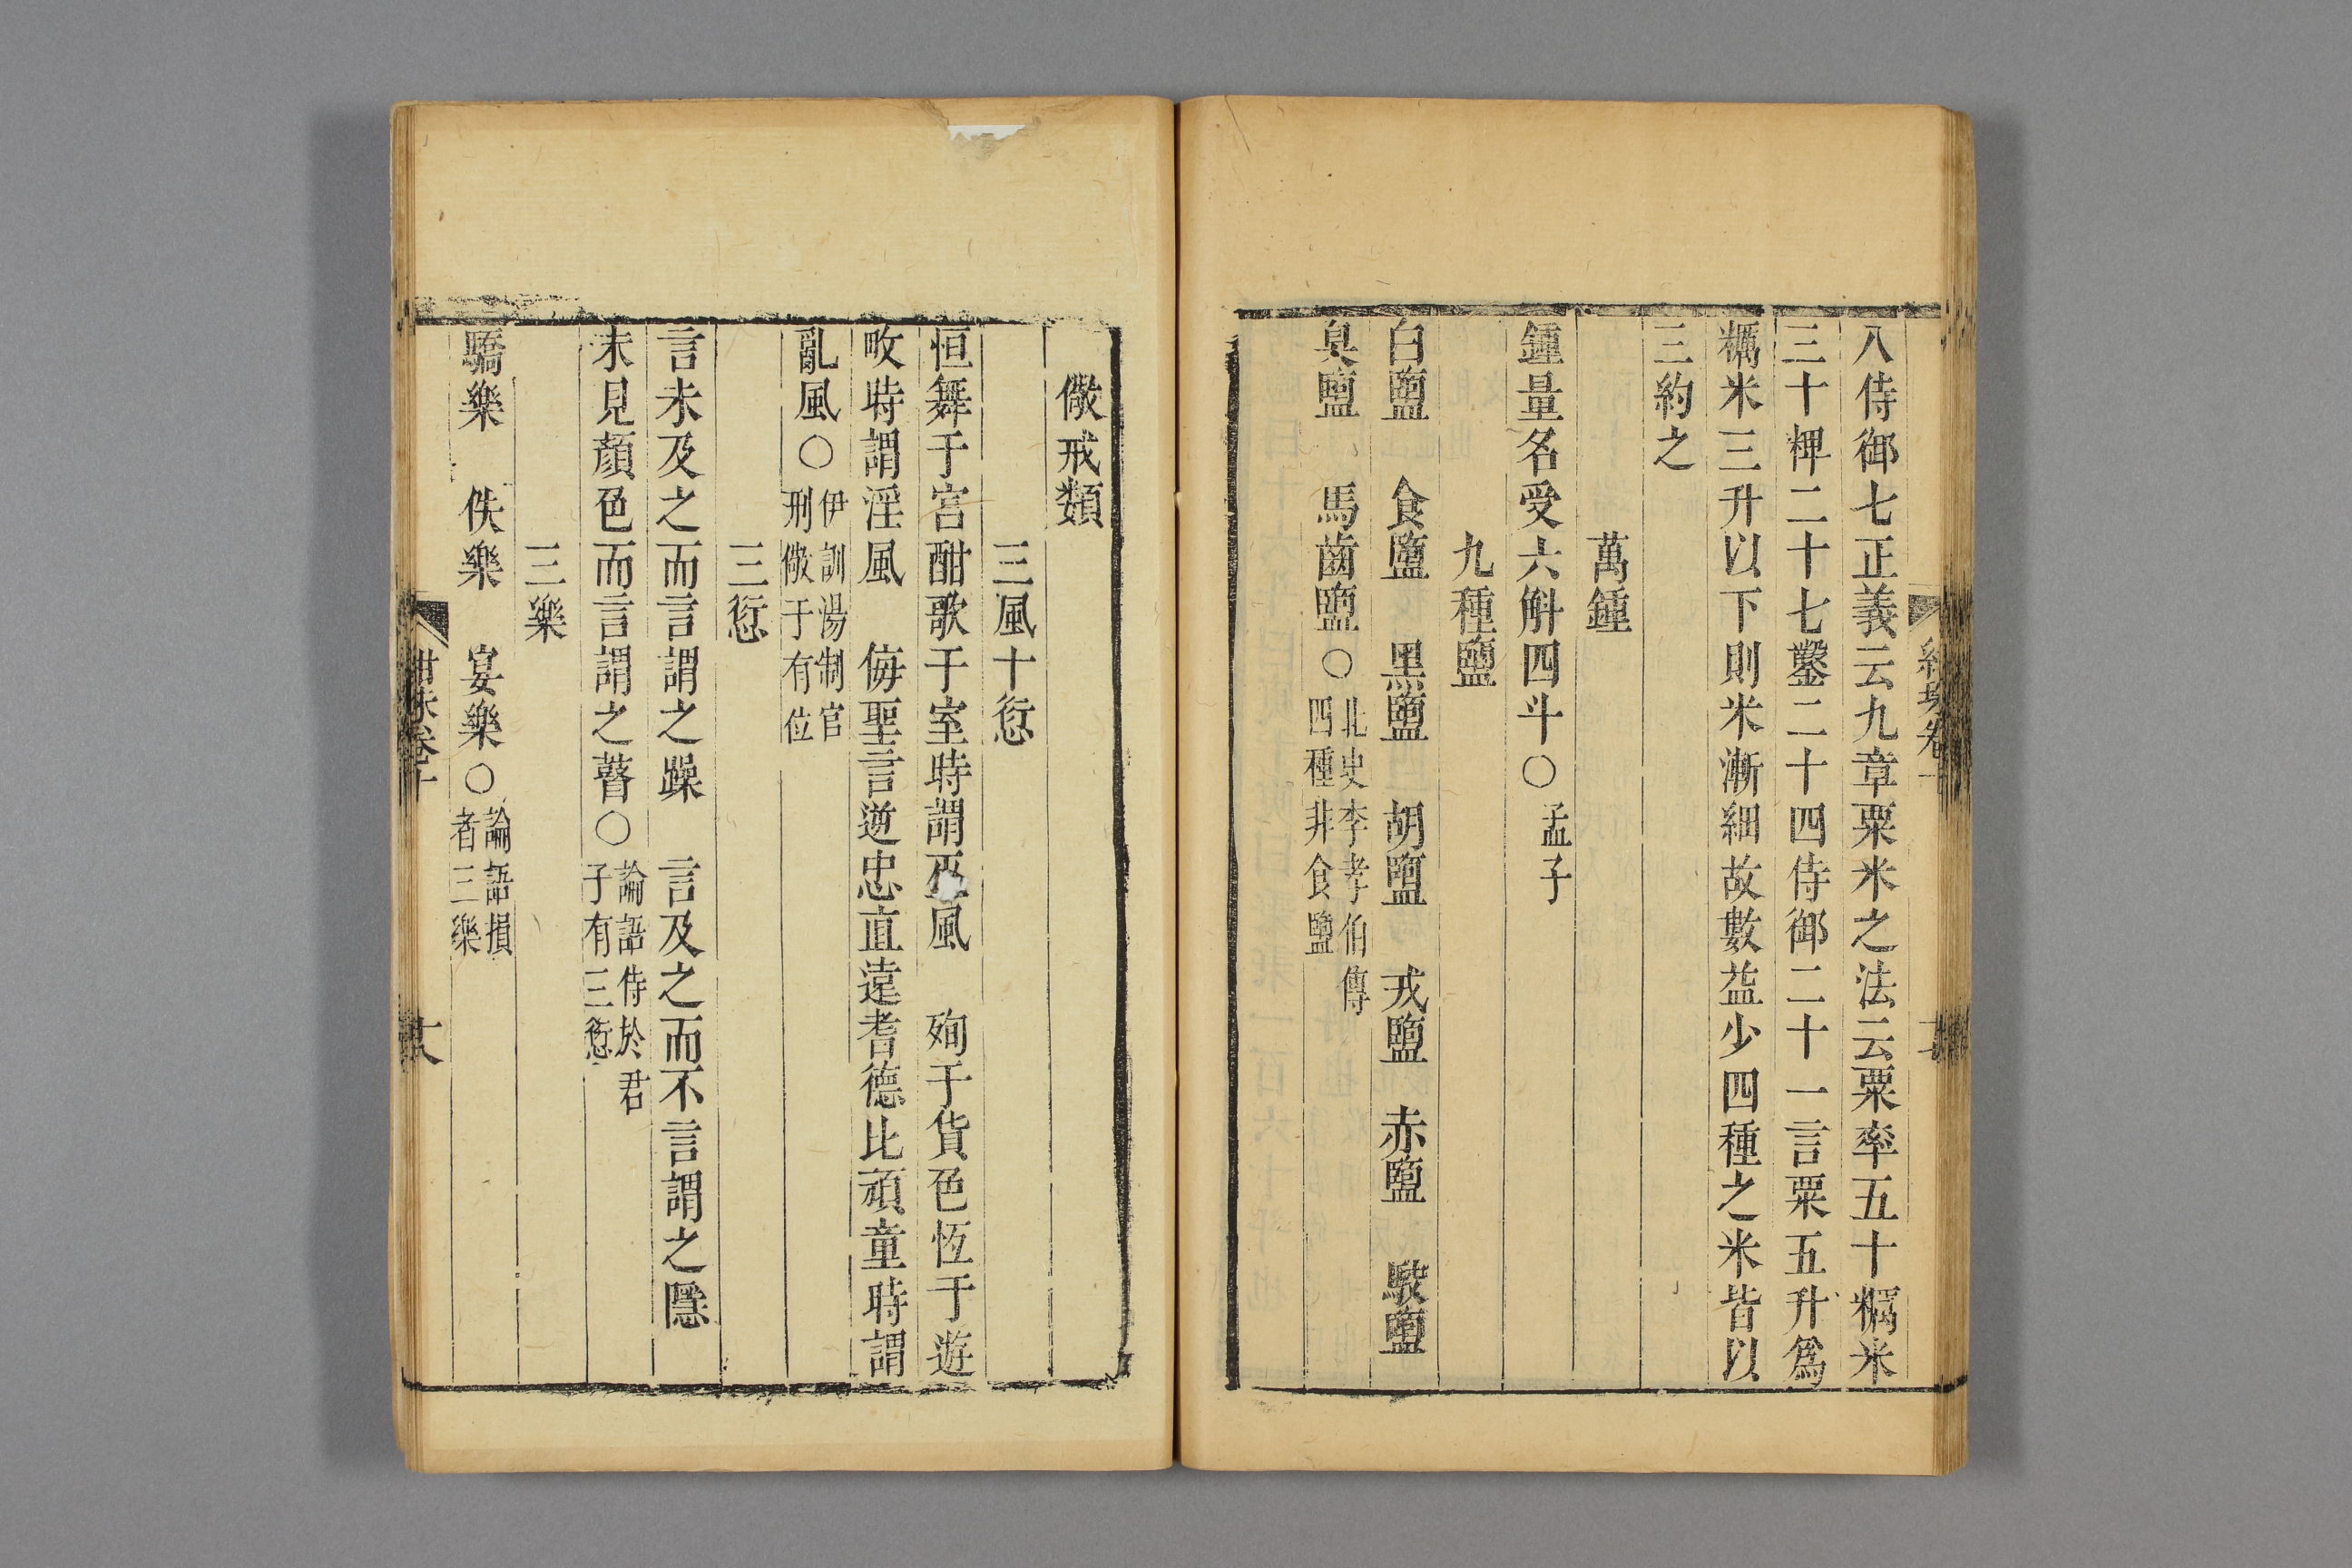 八侍御七正義云九章粟米之法云粟率五十糲米
三十粺二十七鑿二十四侍御二十一言粟五升爲
糲米三升以下則米漸細故數益少四種之米皆以
三約之
萬鍾
鍾量名受六斛四斗○孟子
九種鹽
白鹽　食鹽　黑鹽　胡鹽　戎鹽　赤鹽　駮鹽
臭鹽　馬齒鹽○北史李孝伯傳
四種非食鹽
儆戒類
三風十愆
恒舞于宮酣歌于室時謂巫風　殉于貨色恆于遊
畋時謂淫風　侮聖言逆忠直遠耆德比頑童時謂
亂風○伊訓湯制官
刑儆于有位
三愆
言未及之而言謂之躁　言及之而不言謂之隱
未見顏色而言謂之瞽○論語侍於君
子有三愆
三樂
驕樂　佚樂　宴樂○論語損
者三樂